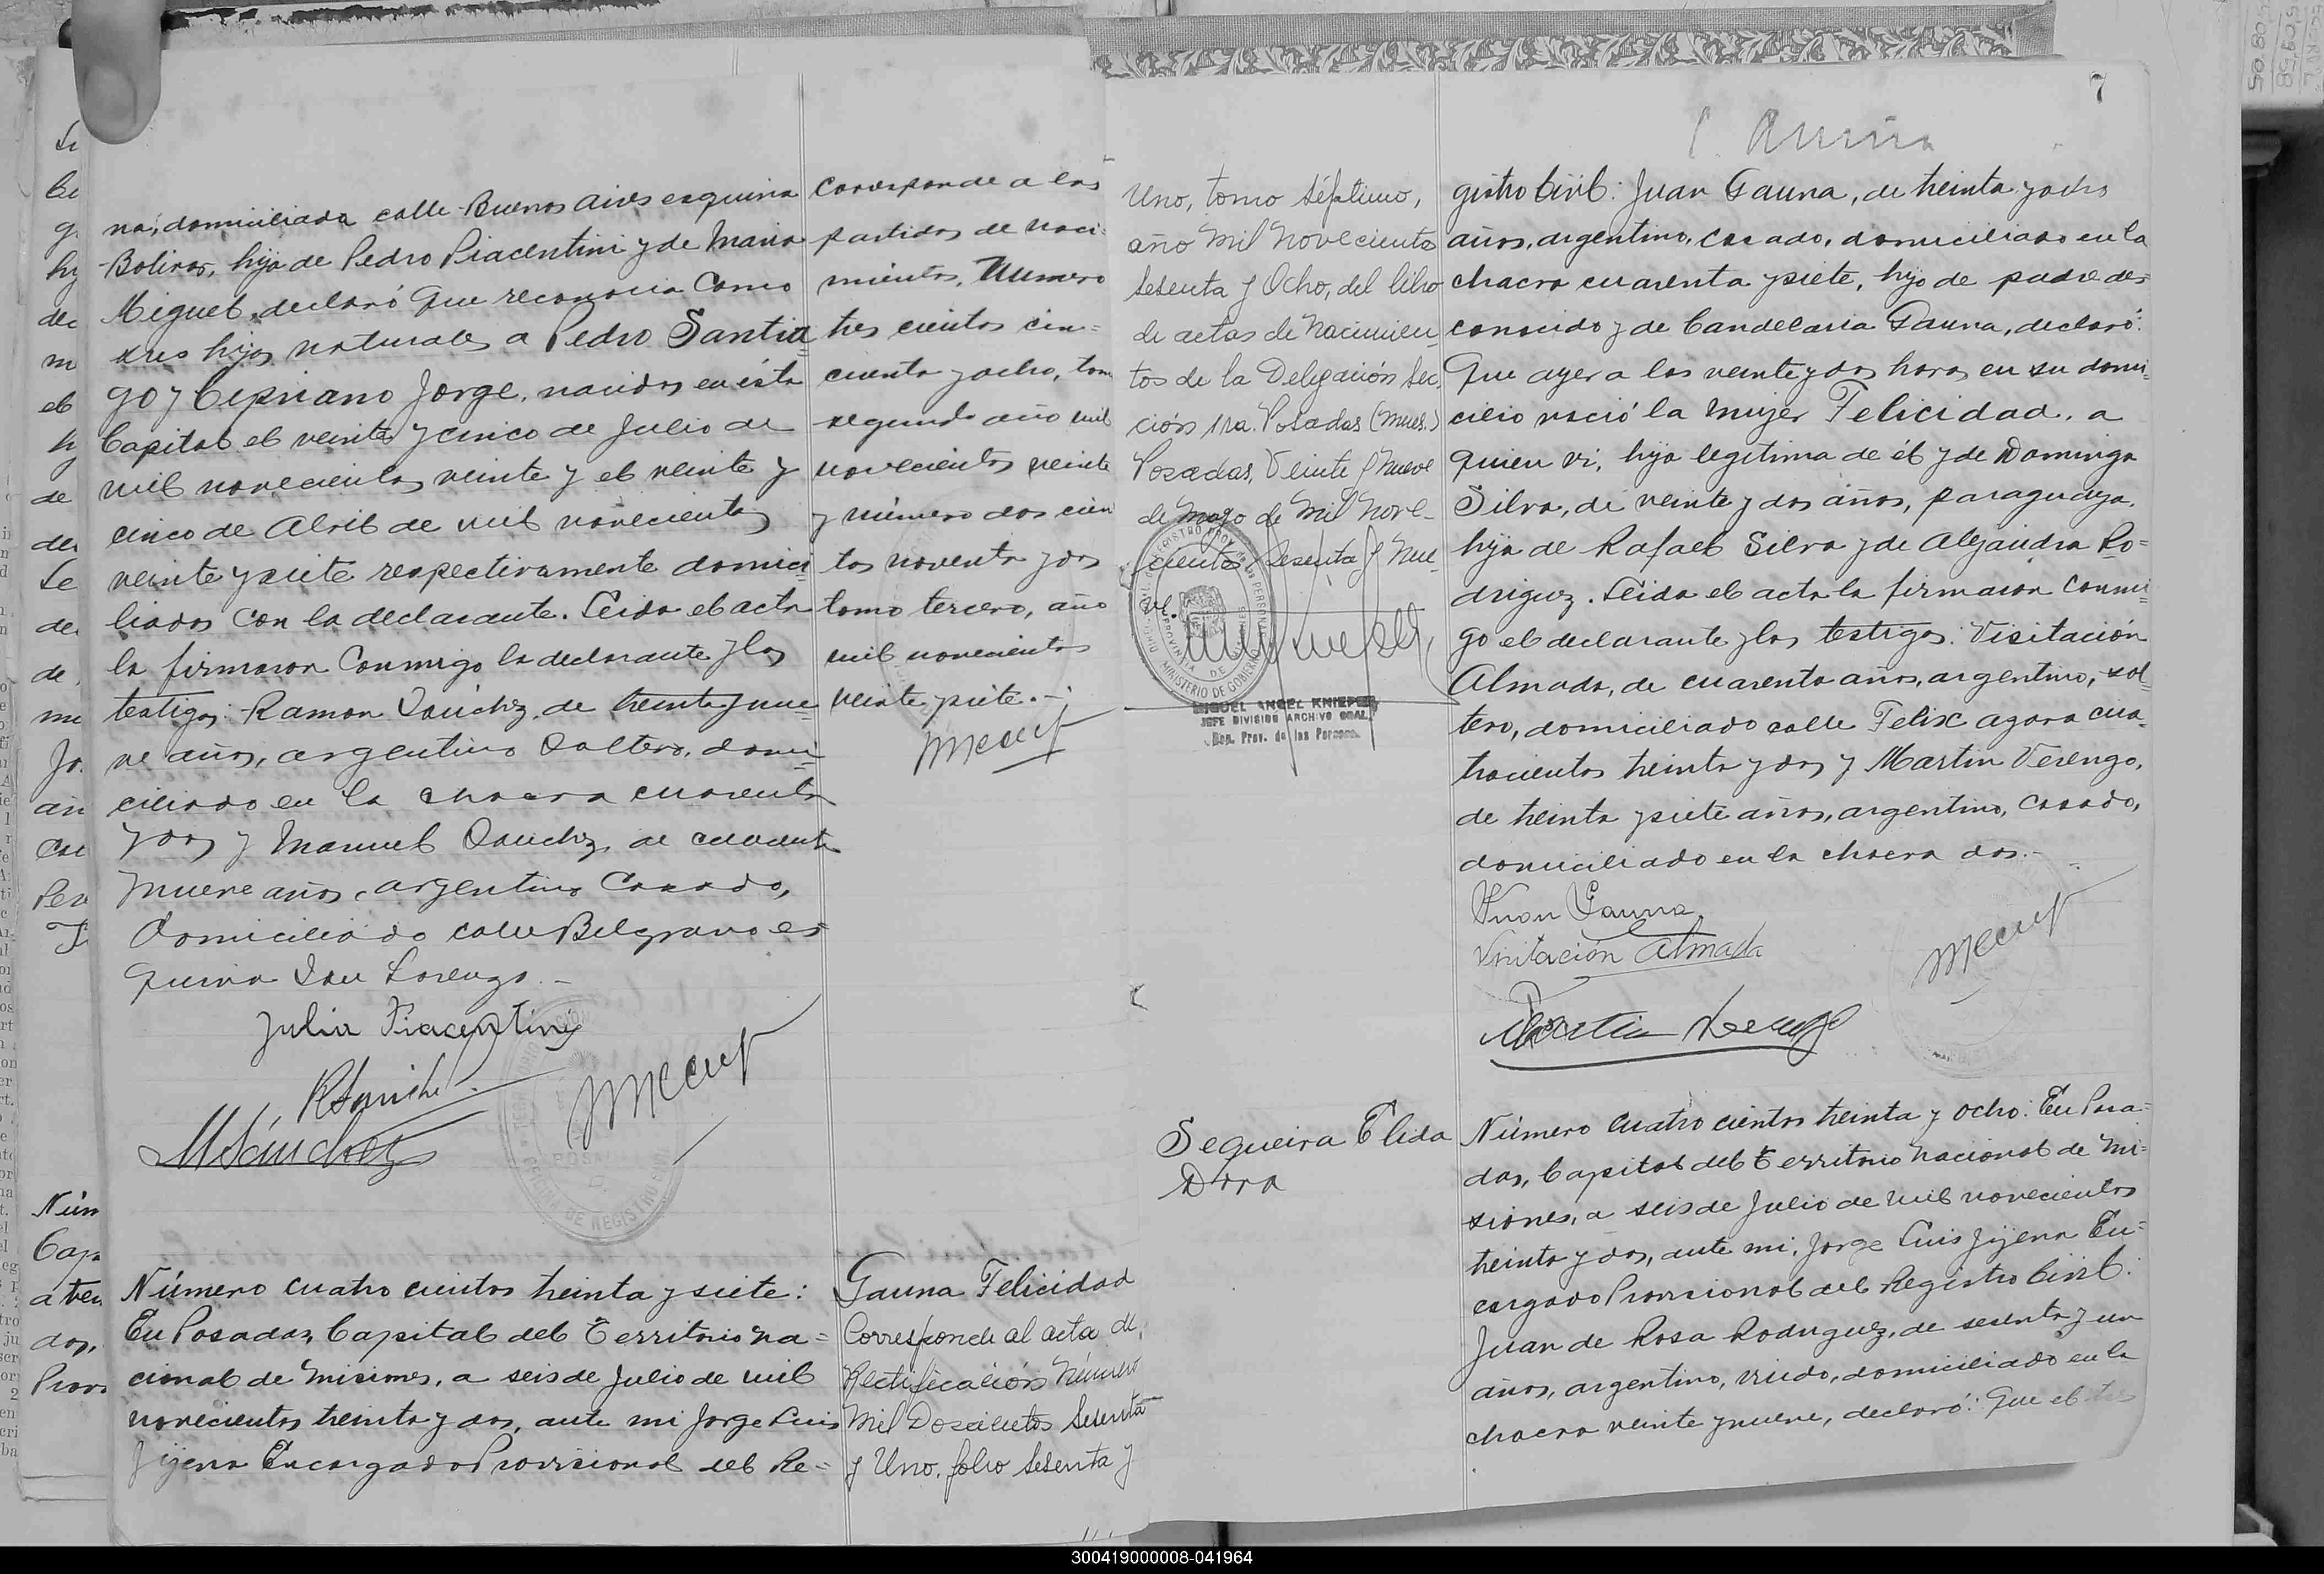 na, domiciliada calle Buenos Aires esquina
Bolivar, hija de Pedro Piacentini y de Maria
Miguel, declaró que reconocia como
sus hijos naturales a Pedro Santia=
go y Cipriano Jorge, nacidos en ésta
Capital el veinte y cinco de Julio de
mil novecientos veinte y el veinte y
cinco de Abril de mil novecientos
veinte y siete respectivamente domici=
liados con la declarante. Leida el acta
la firmaron conmigo la declarante y los
testigos: Ramon Sánchez, de treinta y nue
ve años, argentino soltero, domi=
ciliado en la chacra cuarenta
y dos y Manuel Sanchez, de cuarenta
nueve años, argentino casado,
domiciliado calle Belgrano es
quina San Lorenzo.-
Julia Piacentini
RSanchez
MSánchez
corresponde a las
partidas de naci=
mientos, Numero
tres cientos cin=
cuenta y ocho, tomo
segundo año mil
novecientos veinte
y número dos cien
tos noventa y dos
tomo tercero, año
mil novecientos
veinte y siete.-
Número cuatro cientos treinta y siete:
En Posadas, Capital del Territorio Na=
cional de Misiones, a seis de Julio de mil
novecientos treinta y dos, ante mi Jorge Luis
Jijena Encargado Provisional del Re=
Gauna Felicidad
Corresponde al acta de
Rectificación Número
Mil Doscientos Sesenta
y Uno, folio Sesenta y
Uno, tomo Séptimo,
año Mil Novecientos
Sesenta y Ocho, del libro
de actas de Nacimien=
tos de la Delegación Sec.
ción 1ra. Posadas (Mnes.)
Posadas, Veinte y Nueve
de Mayo de Mil Nove-
cientos Sesenta y Nue-
ve.
MIGUEL ANGEL KNIEPER
JEFE DIVISION ARCHIVO GRAL.
Reg. Prov. de las Personas
7
gistro Civil: Juan Gauna, de treinta y ocho
años, argentino, casado, domiciliado en la
chacra cuarenta y siete, hijo de padre des=
conocido y de Candelaria Gauna, declaró:
Que ayer a las veinte y dos horas en su domi=
cilio nació la mujer Felicidad, a
quien vi, hija legitima de él y de Dominga
Silva, de veinte y dos años, paraguaya,
hija de Rafael Silva y de Alejandra Ro=
driguez. Leida el acta la firmaron conmi=
go el declarante y los testigos: Visitación
Almada, de cuarenta años, argentino, sol=
tero, domiciliado calle Felix Azara cua=
trocientos treinta y dos y Martin Verengo,
de treinta y siete años, argentino, casado,
domiciliado en la chacra dos.-
Juan Gauna
Visitación Almada
Sequeira Elida
Dora
Número cuatro cientos treinta y ocho: En Posa=
das, Capital del Territorio Nacional de Mi=
siones, a seis de Julio de mil novecientos
treinta y dos, ante mi, Jorge Luis Jijena En=
cargado Provisional del Registro Civil:
Juan de Rosa Rodriguez, de sesenta y un
años, argentino, viudo, domiciliado en la
chacra veinte y nueve, declaró: Que el tres
300419000008-041964